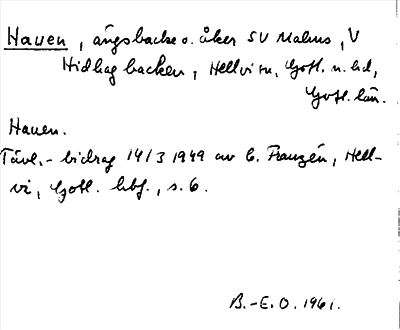 Hauen, ängsbacke o. åker SV Malms, V
Hidhagbacken, Hellvi sn, Gotl. n. hd,
Gotl. län.
Hauen.
Tävl.-bidrag 14/3 1949 av C. Franzén, Hell-
vi, Gotl. hbf., s. 6.
B.-E. O. 1961.